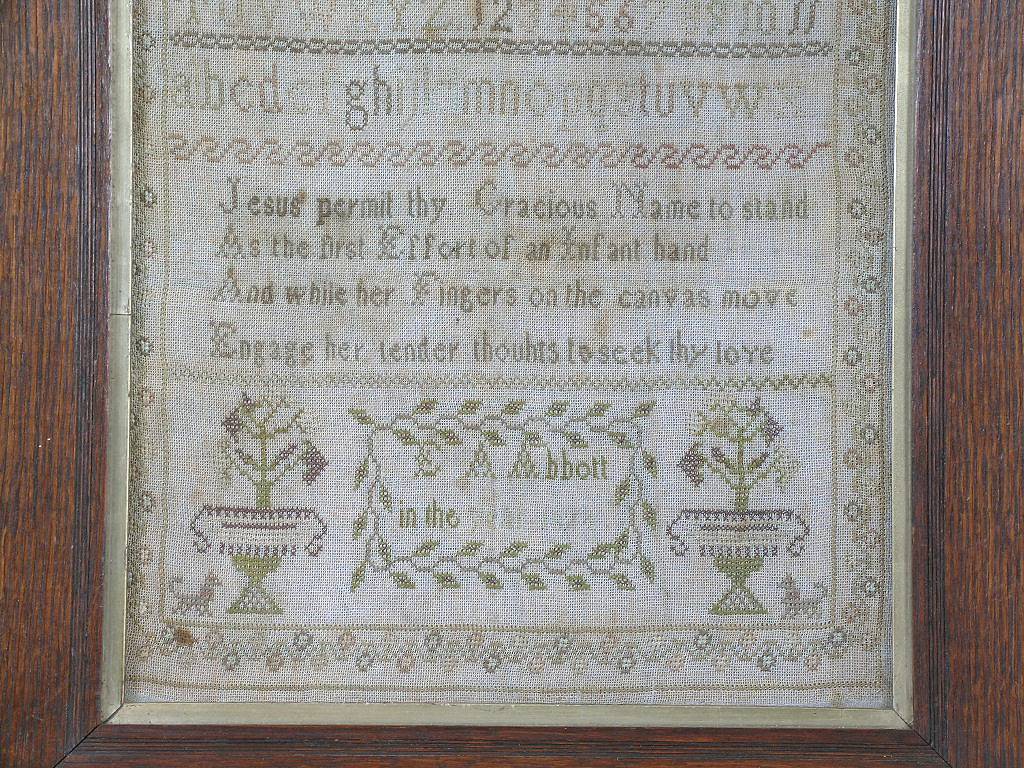 abcd ghi mnopq tuvw
Jesus permit thy Gracious Name to stand
As the first Effort of an Infant hand
And while her Fingers on the canvas move
Engage her tender thouhts to seek thy love
E A Abbott
in the